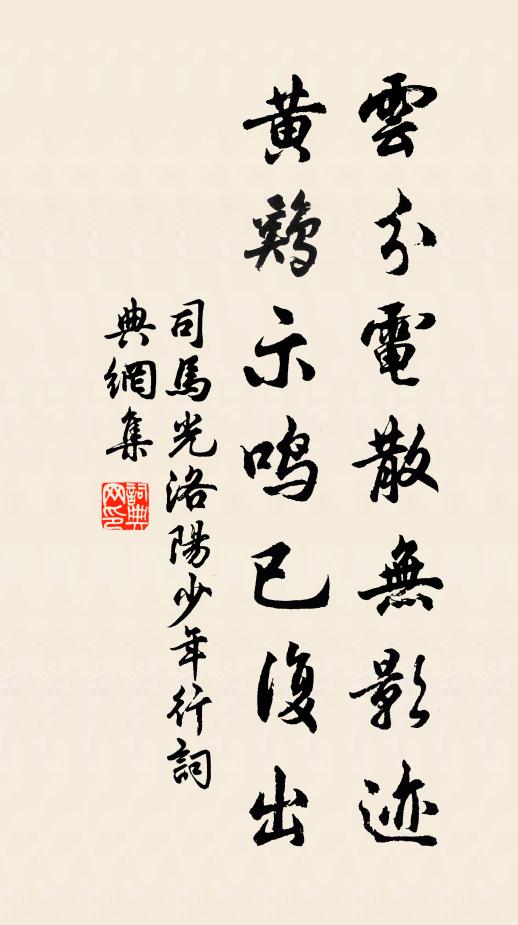 雲分電散無影迹
黄鷄示鳴已復出
司馬光洛陽少年行詞
典網集
詞典
网印